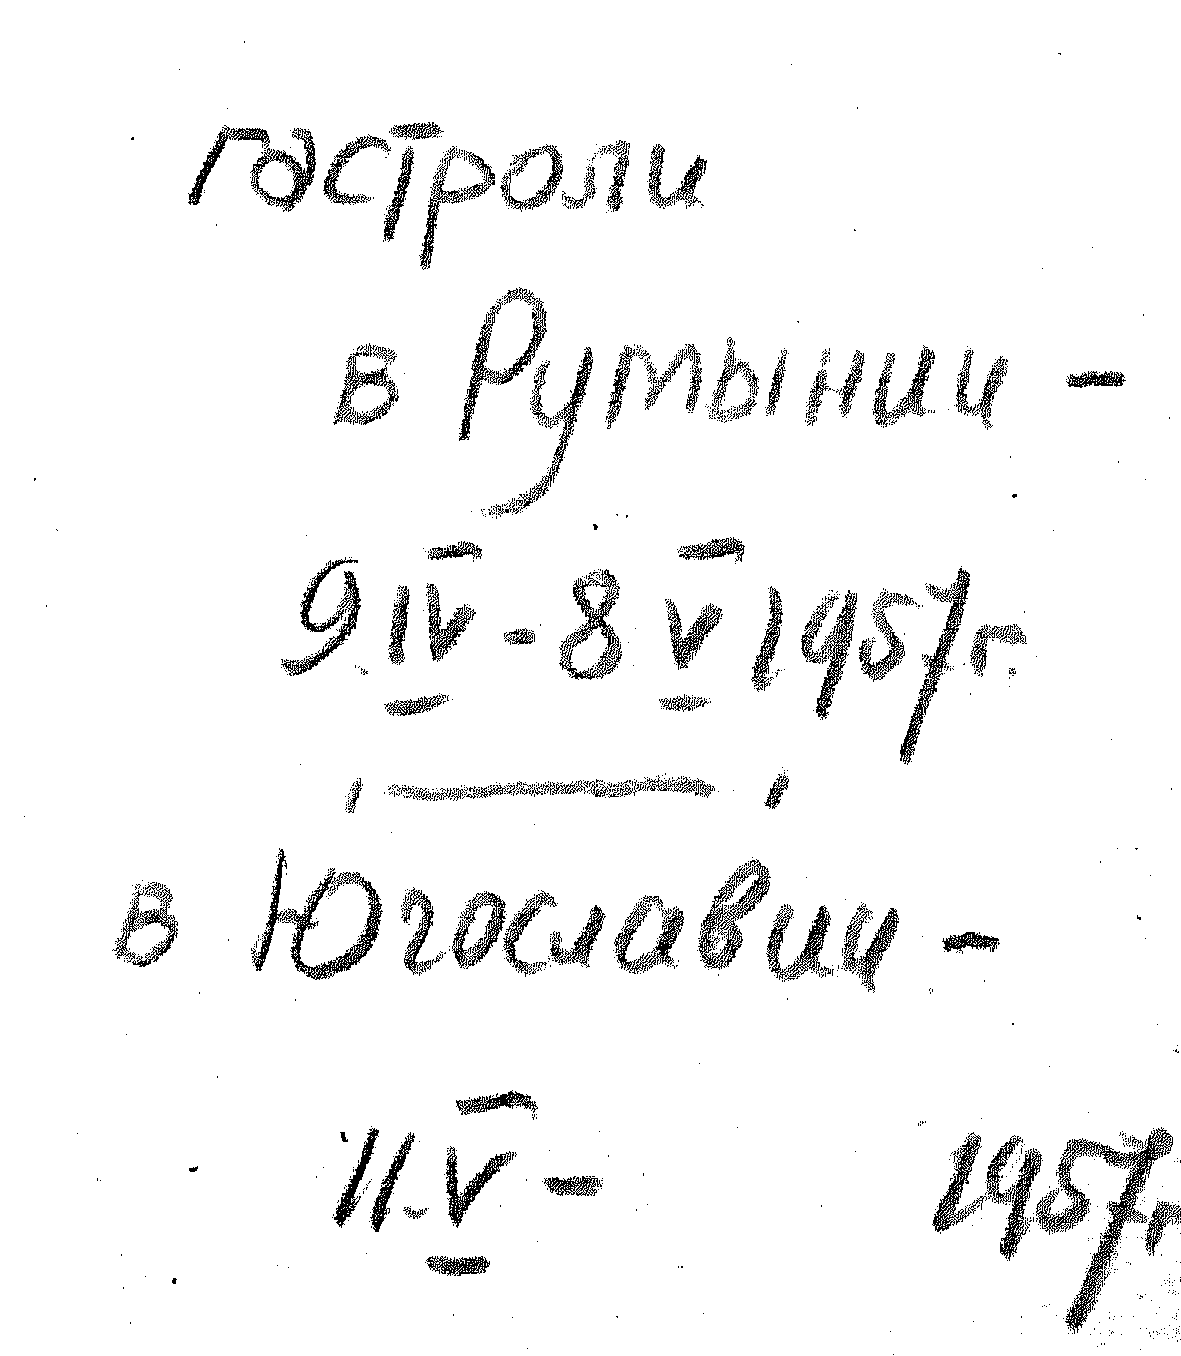 гастроли
в Румынии -
9 IV - 8 V 1957 г.
в Югославии -
11.V - 1957 г.